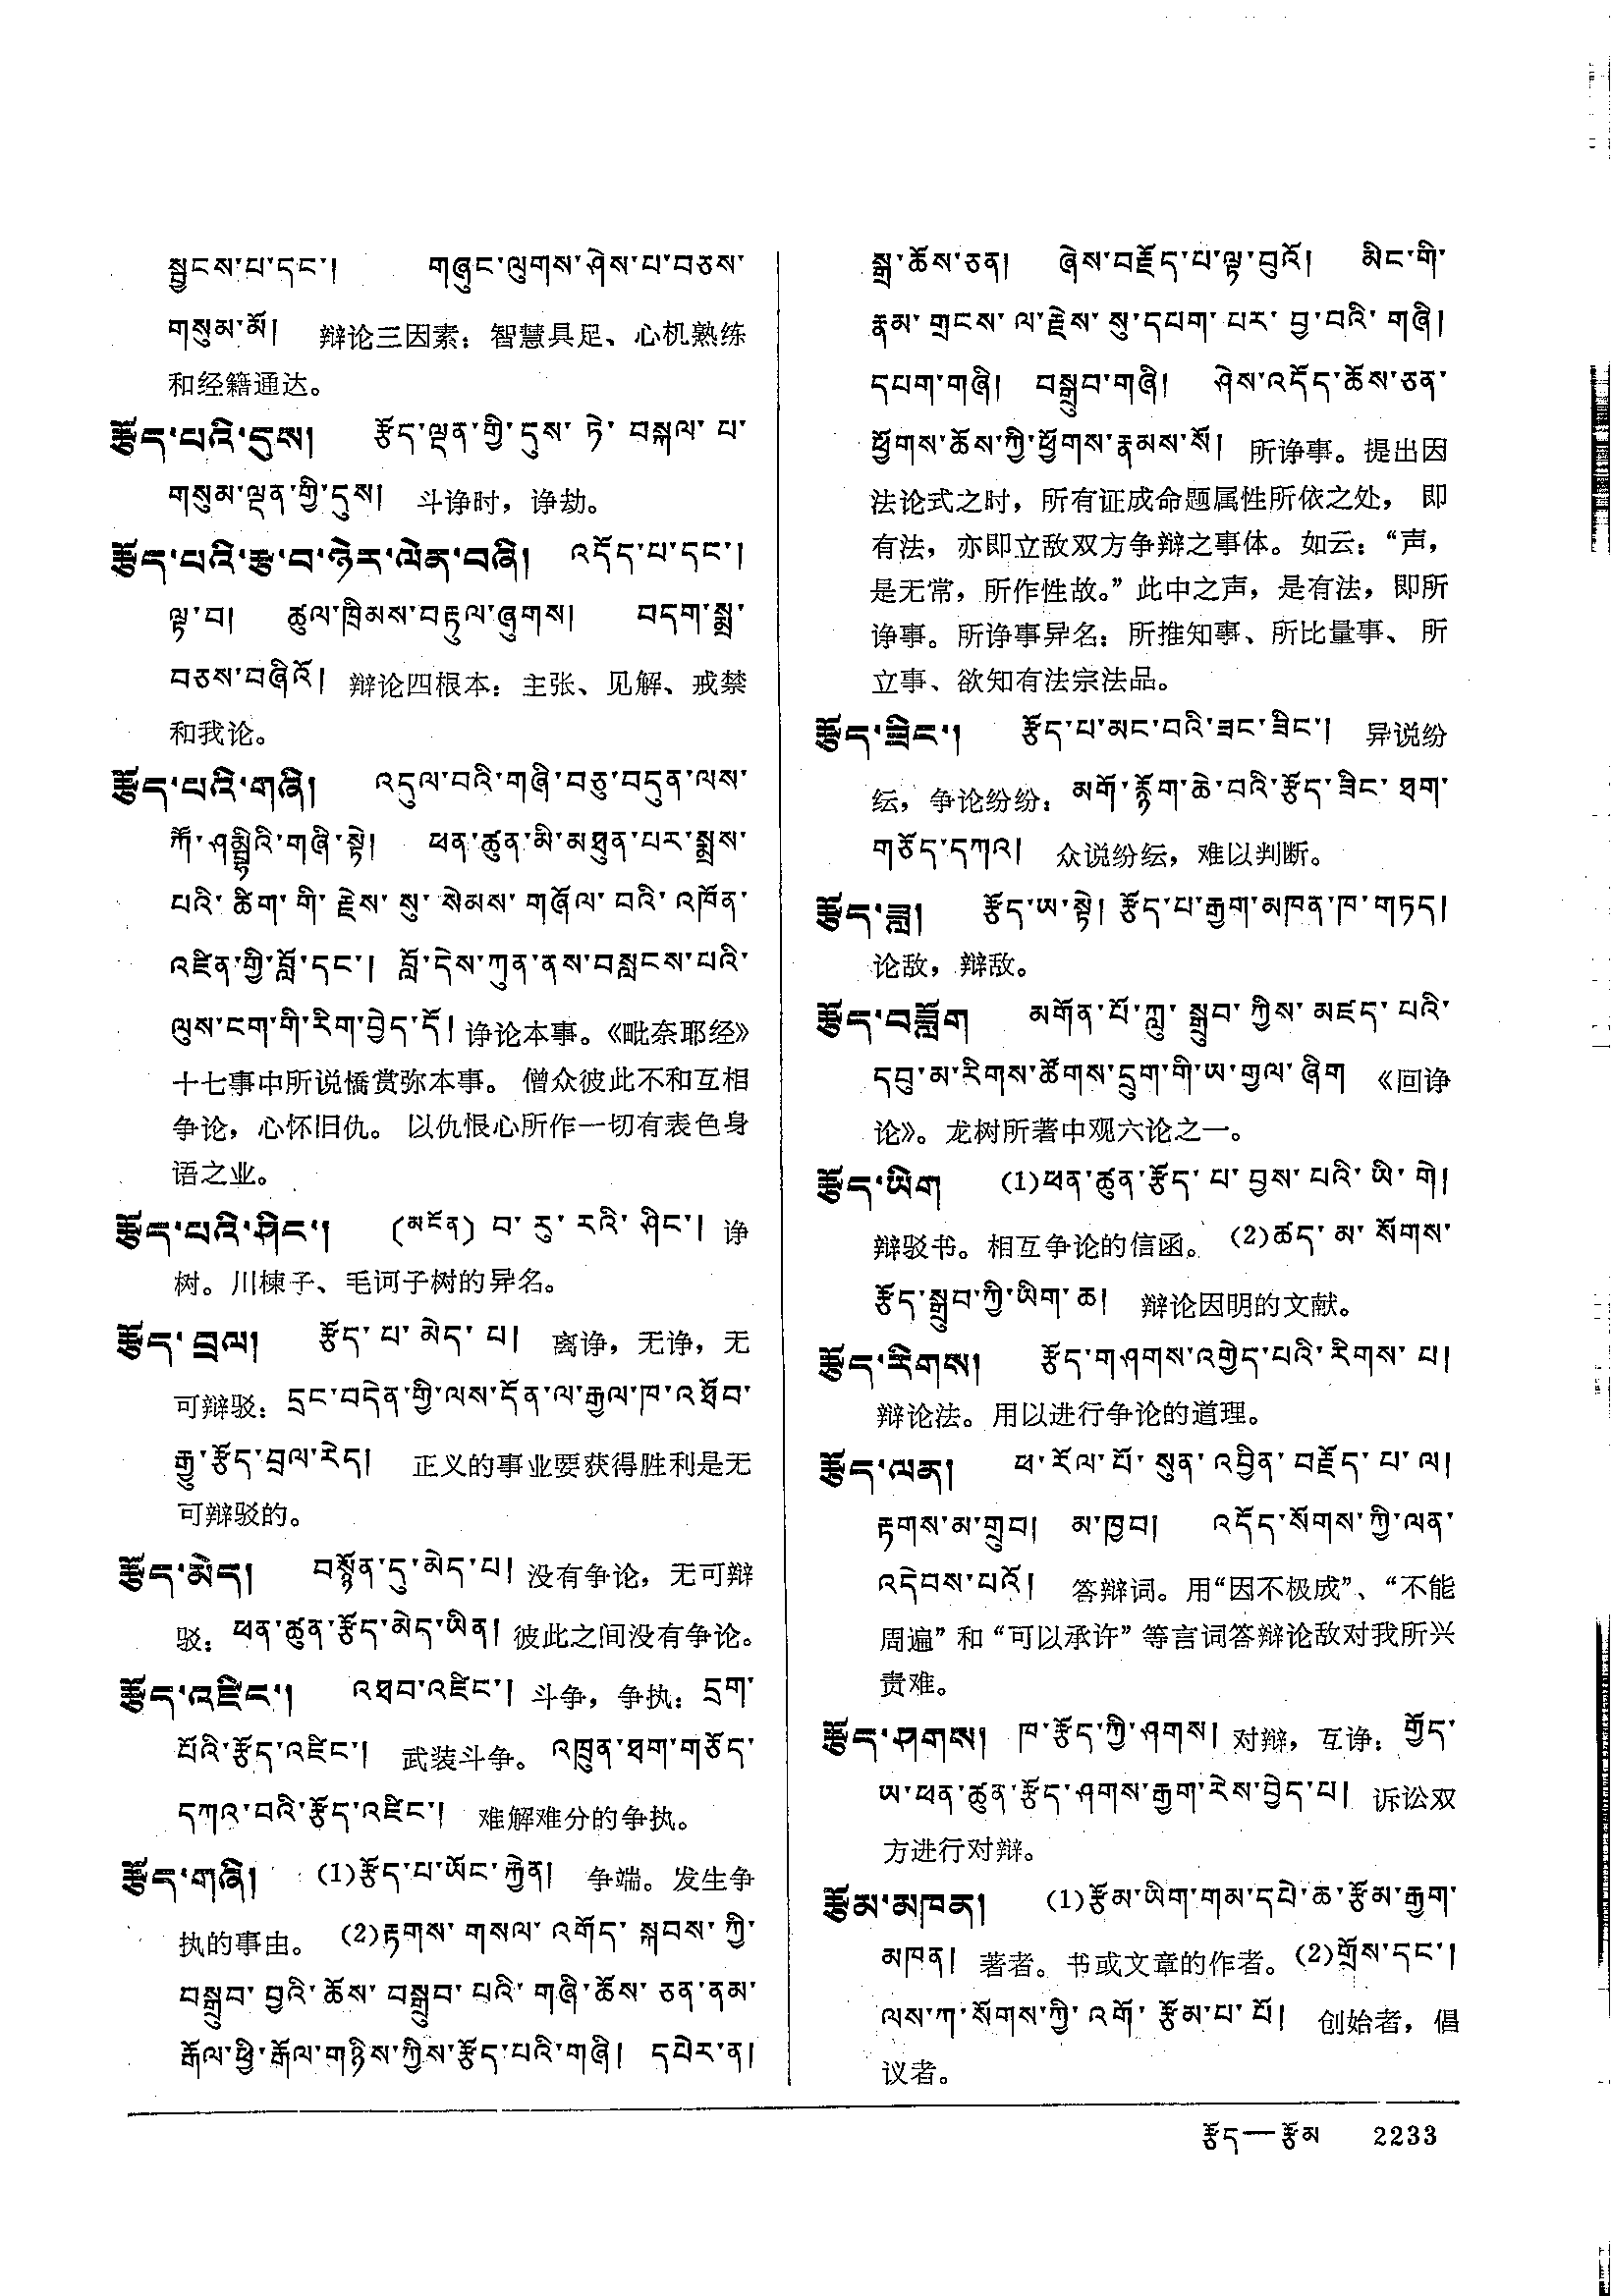 སྦྱངས་པ་དང་། གཞུང་ལུགས་ཤེས་པ་བཅས་
གསུམ་མོ། 辩论三因素：智慧具足、心机熟练
和经籍通达。
རྩོད་པའི་དུས། རྩོད་ལྡན་གྱི་དུས་ཏེ་བསྐལ་པ་
གསུམ་ལྡན་གྱི་དུས། 斗诤时，诤劫。
རྩོད་པའི་རྩ་བ་ཉེར་ལེན་བཞི། འདོད་པ་དང་།
ལྟ་བ། ཚུལ་ཁྲིམས་བརྟུལ་ཞུགས། བདག་སྨྲ་
བཅས་བཞིའོ། 辩论四根本：主张、见解、戒禁
和我论。
རྩོད་པའི་གཞི། འདུལ་བའི་གཞི་བཅུ་བདུན་ལས་
ཀོ་ཤམྦྷིའི་གཞི་སྟེ། ཕན་ཚུན་མི་མཐུན་པར་སྨྲས་
པའི་ཚིག་གི་རྗེས་སུ་སེམས་གཞོལ་བའི་འཁོན་
འཛིན་གྱི་བློ་དང་། བློ་དེས་ཀུན་ནས་བསླངས་པའི་
ལུས་ངག་གི་རིག་བྱེད་དོ། 诤论本事。《毗奈耶经》
十七事中所说憍赏弥本事。僧众彼此不和互相
争论，心怀旧仇。以仇恨心所作一切有表色身
语之业。
རྩོད་པའི་ཤིང་། (མངོན) བ་རུ་རའི་ཤིང་། 诤
树。川楝子、毛诃子树的异名。
རྩོད་བྲལ། རྩོད་པ་མེད་པ། 离诤，无诤，无
可辩驳：དྲང་བདེན་གྱི་ལས་དོན་ལ་རྒྱལ་ཁ་འཐོབ་
རྒྱུ་རྩོད་བྲལ་རེད། 正义的事业要获得胜利是无
可辩驳的。
རྩོད་མེད། བསྙོན་དུ་མེད་པ། 没有争论，无可辩
驳：ཕན་ཚུན་རྩོད་མེད་ཡིན། 彼此之间没有争论。
རྩོད་འཛིང་། འཐབ་འཛིང་། 斗争，争执：དྲག་
པོའི་རྩོད་འཛིང་། 武装斗争。འཁྲུན་ཐག་གཅོད་
དཀའ་བའི་རྩོད་འཛིང་། 难解难分的争执。
རྩོད་གཞི། (1)རྩོད་པ་ཡོང་རྐྱེན། 争端。发生争
执的事由。(2)རྟགས་གསལ་འགོད་སྐབས་ཀྱི་
བསྒྲུབ་བྱའི་ཆོས་བསྒྲུབ་པའི་གཞི་ཆོས་ཅན་ནམ་
རྒོལ་ཕྱི་རྒོལ་གཉིས་ཀྱིས་རྩོད་པའི་གཞི། དཔེར་ན།
སྒྲ་ཆོས་ཅན། ཞེས་བརྗོད་པ་ལྟ་བུའོ། མིང་གི་
རྣམ་གྲངས་ལ་རྗེས་སུ་དཔག་པར་བྱ་བའི་གཞི།
དཔག་གཞི། བསྒྲུབ་གཞི། ཤེས་འདོད་ཆོས་ཅན་
ཕྱོགས་ཆོས་ཀྱི་ཕྱོགས་རྣམས་སོ། 所诤事。提出因
法论式之时，所有证成命题属性所依之处，即
有法，亦即立敌双方争辩之事体。如云：“声，
是无常，所作性故。”此中之声，是有法，即所
诤事。所诤事异名：所推知事、所比量事、所
立事、欲知有法宗法品。
རྩོད་ཟིང་། རྩོད་པ་མང་བའི་ཟང་ཟིང་། 异说纷
纭，争论纷纷：མགོ་རྙོག་ཆེ་བའི་རྩོད་ཟིང་ཐག་
གཅོད་དཀའ། 众说纷纭，难以判断。
རྩོད་ཟླ། རྩོད་ཡ་སྟེ། རྩོད་པ་རྒྱག་མཁན་ཁ་གཏད།
论敌，辩敌。
རྩོད་བཟློག མགོན་པོ་ཀླུ་སྒྲུབ་ཀྱིས་མཛད་པའི་
དབུ་མ་རིགས་ཚོགས་དྲུག་གི་ཡ་གྱལ་ཞིག 《回诤
论》。龙树所著中观六论之一。
རྩོད་ཡིག (1)ཕན་ཚུན་རྩོད་པ་བྱས་པའི་ཡི་གེ།
辩驳书。相互争论的信函。(2)ཚད་མ་སོགས་
རྩོད་སྒྲུབ་ཀྱི་ཡིག་ཆ། 辩论因明的文献。
རྩོད་རིགས། རྩོད་གཤགས་འགྱེད་པའི་རིགས་པ།
辩论法。用以进行争论的道理。
རྩོད་ལན། ཕ་རོལ་པོ་སུན་འབྱིན་བརྗོད་པ་ལ།
རྟགས་མ་གྲུབ། མ་ཁྱབ། འདོད་སོགས་ཀྱི་ལན་
འདེབས་པའོ། 答辩词。用“因不极成”、“不能
周遍”和“可以承许”等言词答辩论敌对我所兴
责难。
རྩོད་ཤགས། ཁ་རྩོད་ཀྱི་ཤགས། 对辩，互诤：གྱོད་
ཡ་ཕན་ཚུན་རྩོད་ཤགས་རྒྱག་རེས་བྱེད་པ། 诉讼双
方进行对辩。
རྩོམ་མཁན། (1)རྩོམ་ཡིག་གམ་དཔེ་ཆ་རྩོམ་རྒྱག་
མཁན། 著者。书或文章的作者。(2)གྲོས་དང་།
ལས་ཀ་སོགས་ཀྱི་འགོ་རྩོམ་པ་པོ། 创始者，倡
议者。
རྩོད—རྩོམ 2233